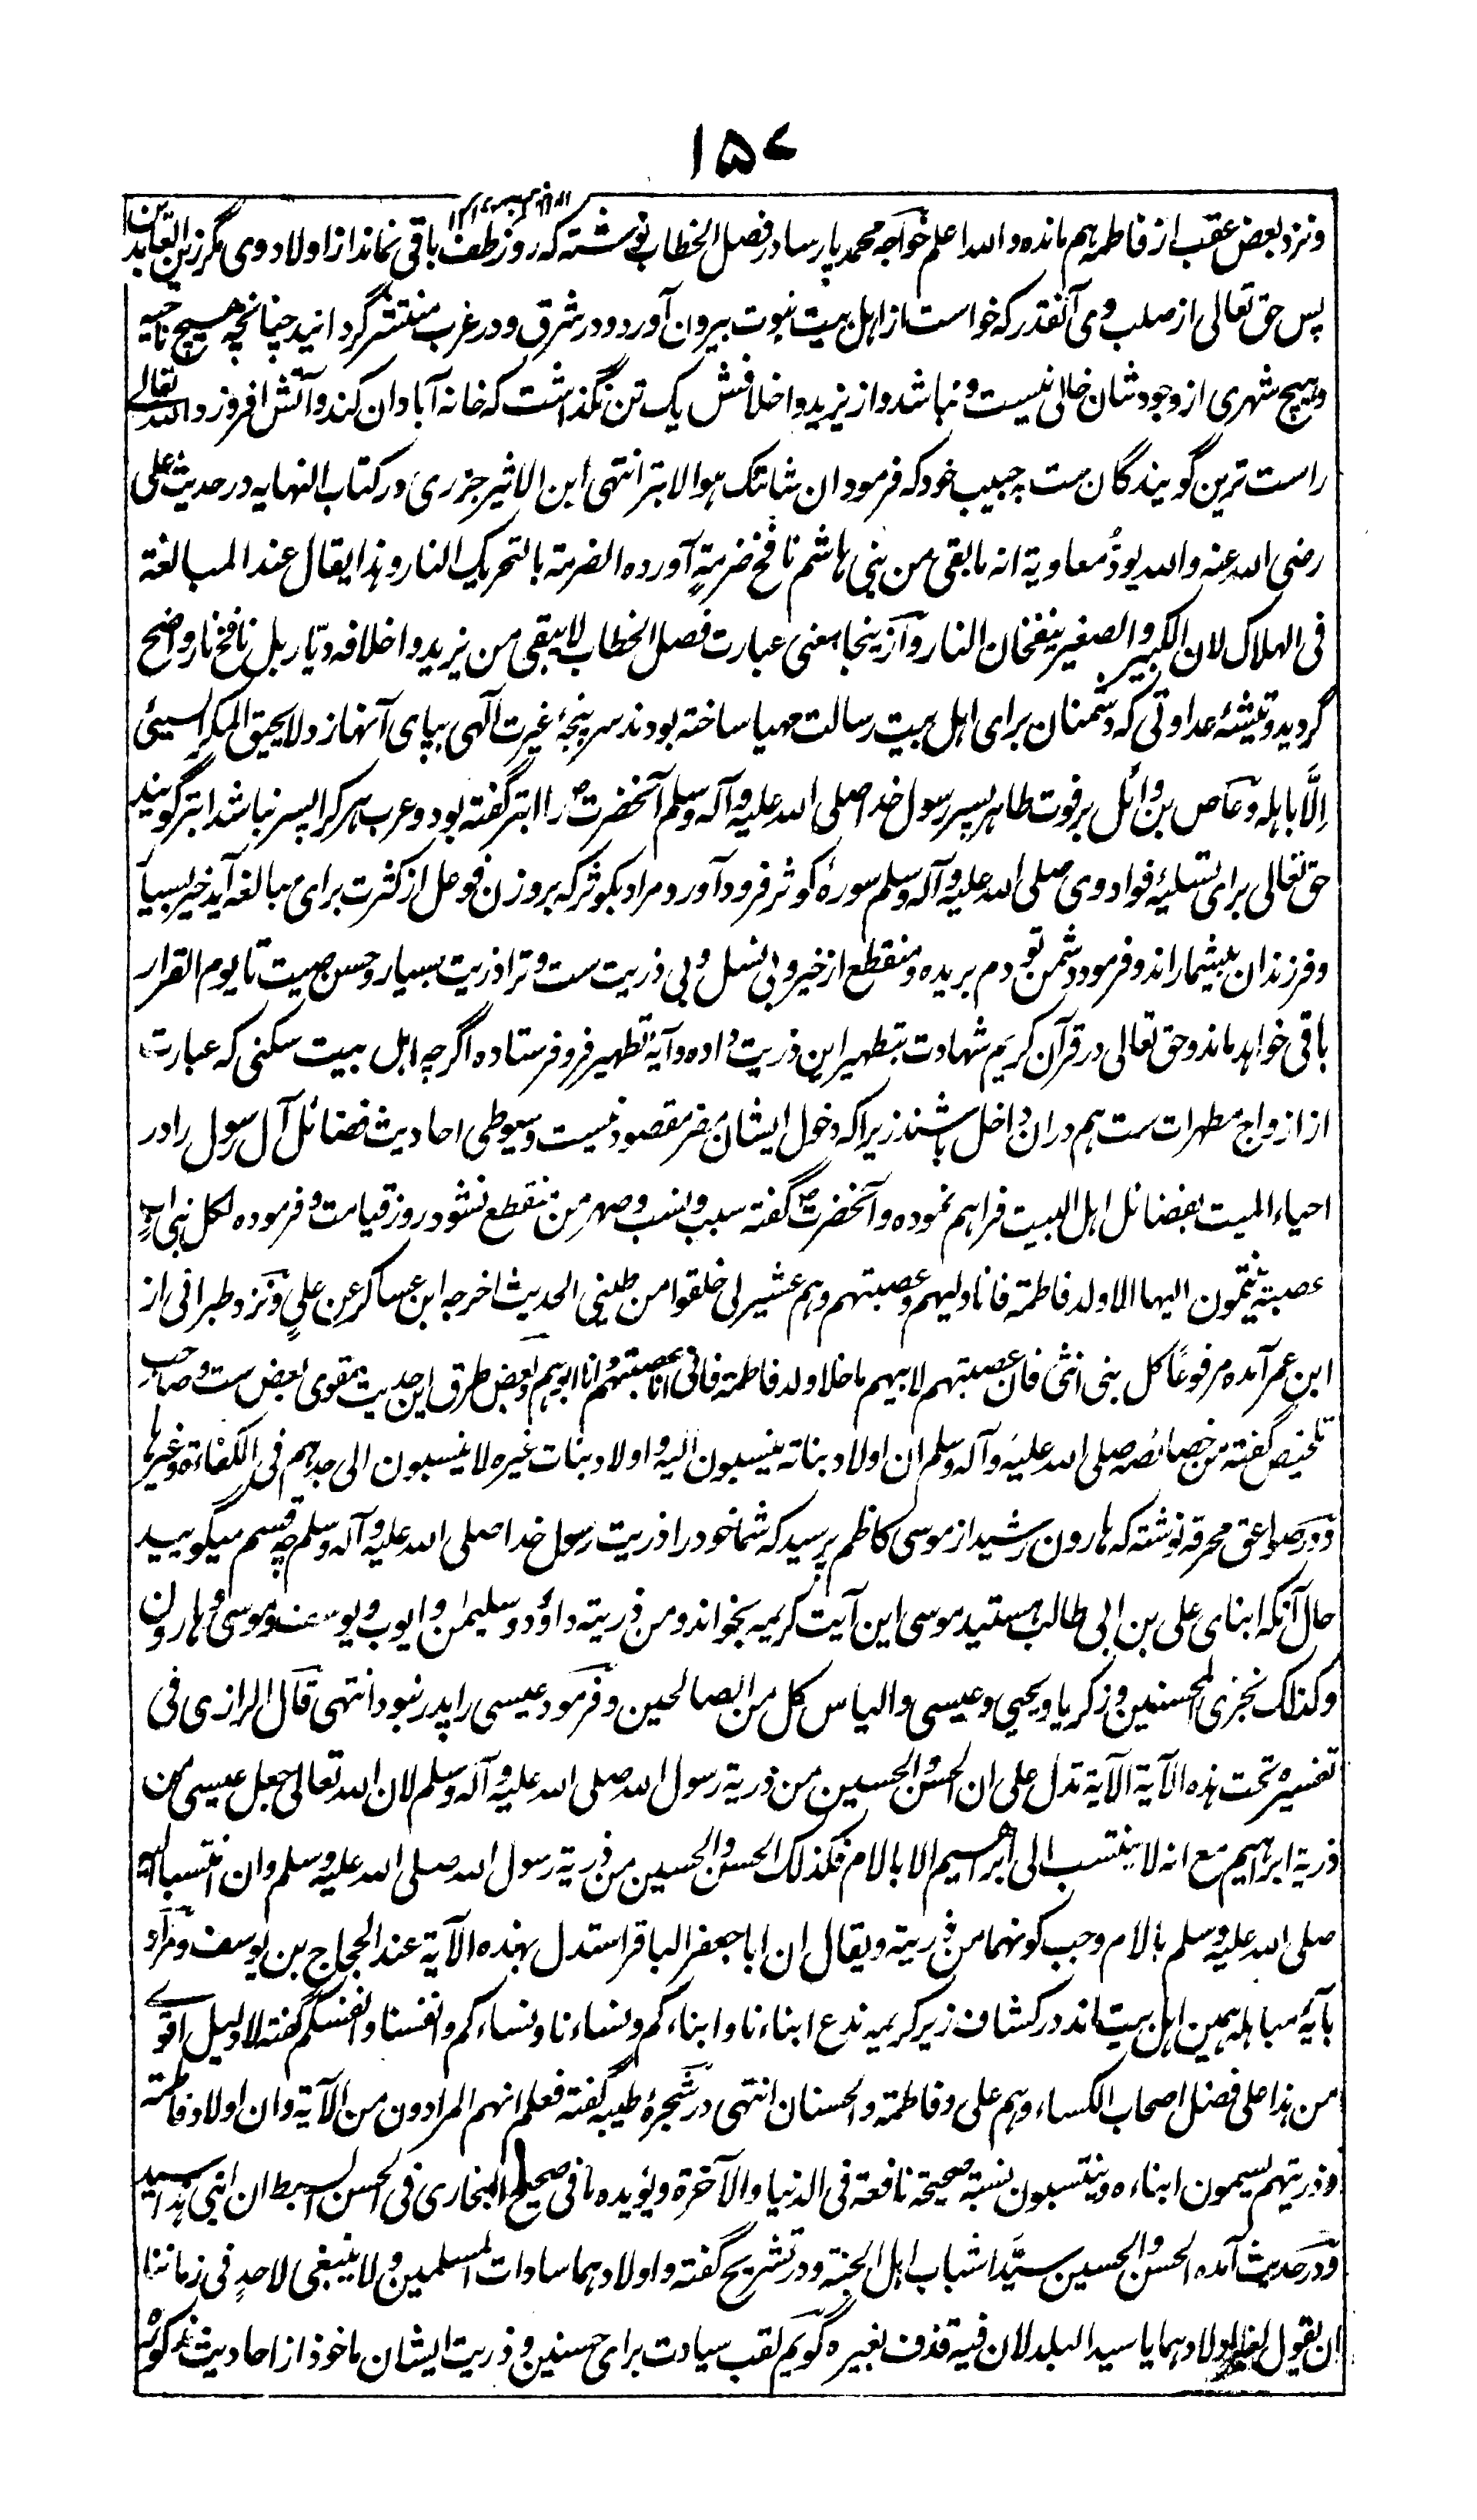 ۱۵۷
ونزد بعض عقب از فاطمه هم مانده والله اعلم خواجه محمد پارسا در فصل الخطاب نوشته که روز طف باقی نماند از اولاد وی مگر زین العابدین
پس حق تعالی از صلب وی آنقدر که خواست از اهل بیت نبوت بیرون آورد و در شرق و در غرب منتشر گردانید چنانچه هیچ ناحیه
و هیچ شهری از وجود شان خالی نیست و نباشد و از یزید و اخلافش یک تن نگذاشت که خانه آبادان کند و آتش افروزد الله تعالی
راست ترین گویندگان ست بحبیب خود که فرمود ان شانئک هو الابتر انتهی ابن الاثیر جزری در کتاب النهایه در حدیث علی
رضی الله عنه والله یودُّ معاویة انه ما بقی من بنی هاشم نافخ ضرمةٍ آورده الضرمة بالتحریک النار وهذا یقال عند المبالغة
فی الهلاک لان الکبیر والصغیر ینفخان النار و از ینجا معنی عبارت فصل الخطاب لا یبقی من یزید و اخلافه دیّار بل نافخ نار واضح
گردید و تیشهٔ عداوتی که دشمنان برای اهل بیت رسالت مهیا ساخته بودند سرپنجهٔ غیرت الٓهی بپای آنها زد ولا یحیق المکر السیئ
اِلَّا باهله و عاص بن وائل بر فوت طاهر پسر رسول خدا صلی الله علیه وآله وسلم آنحضرت ص را ابتر گفته بود و عرب هر کرا پسر نباشد ابتر گویند
حق تعالی برای تسلیهٔ فواد وی صلی الله علیه وآله وسلم سورهٔ کوثر فرود آورد و مراد بکوثر که بروزن فوعل از کثرت برای مبالغه آید خیر بسیار
و فرزندان بیشمار اند و فرمود دشمن تو دم بریده و منقطع از خیر و بی نسل و بی ذریت ست و ترا ذریت بسیار و حسن صیت تا یوم القرار
باقی خواهد ماند و حق تعالی در قرآن کریم شهادت بتطهیر این ذریت داده و آیهٔ تطهیر فرو فرستاده اگرچه اهل بیت سکنی که عبارت
از ازواج مطهرات ست هم دران داخل باشند زیرا که دخول ایشان مضر مقصود نیست و سیوطی احادیث فضائل آل رسول را در
احیاء المیت بفضائل اهل البیت فراهم نموده و آنحضرت ص گفته سبب و نسب و صهر من منقطع نشود روز قیامت و فرموده لکل بنی ابٍ
عصبة ینتمون الیها الا ولد فاطمة فانا ولیهم وعصبتهم وهم عشیرتی خلقوا من طینی الحدیث اخرجه ابن عساکر عن علیٍ و نزد طبرانی از
ابن عمر آمده مرفوعًا کل بنی انثی فان عصبتهم لابیهم ما خلا ولد فاطمة فانی انا عصبتهم وانا ابوهم و بعض طرق این حدیث مقوی بعض ست و صاحب
تلخیص گفته من خصائصه صلی الله علیه وآله وسلم ان اولاد بناته ینسبون الیه واولاد بنات غیره لا ینسبون الی جدهم فی الکفاءة وغیرها
و در صواعق محرقه نوشته که هارون رشید از موسی کاظم پرسید که شما خود را ذریت رسول خدا صلی الله علیه وآله وسلم چه قسم میگویید
حال آنکه ابنای علی بن ابی طالب هستید موسی این آیت کریمه بخواند ومن ذریته داؤد وسلیمٰن وایوب ویوسف وموسی وهارون
وکذلک نجزی المحسنین وزکریا ویحیی وعیسی والیاس کل من الصالحین و فرمود عیسی را پدر نبود انتهی قال الرازی فی
تفسیره تحت هذه الآیة الآیة تدل علی ان الحسن والحسین من ذریة رسول الله صلی الله علیه وآله وسلم لان الله تعالی جعل عیسی من
ذریة ابراهیم مع انه لا ینتسب الی ابراهیم الا بالام فکذلک الحسن والحسین من ذریة رسول الله صلی الله علیه وسلم وان انتسبا الیه
صلی الله علیه وسلم بالام وجب کونهما من ذریته ویقال ان ابا جعفر الباقر استدل بهذه الآیة عند الحجاج بن یوسف و مراد
بآیهٔ مباهله همین اهل بیت اند در کشاف زیر کریمه ندع ابناءنا وابناءکم ونساءنا ونساءکم وانفسنا وانفسکم گفته لا دلیل اقوی
من هذا علی فضل اصحاب الکساء وهم علی وفاطمة والحسنان انتهی در شجرهٔ طیبه گفته فعلم انهم المرادون من الآیة وان اولاد فاطمة
وذریتهم یسمون ابناءه وینتسبون نسبة صحیحة نافعة فی الدنیا والآخرة ویؤیده ما فی صحیح البخاری فی الحسن السبط ان ابنی هذا سید
و در حدیث آمده الحسن والحسین سیّدا شباب اهل الجنة و در تشریح گفته واولادهما سادات المسلمین ولا ینبغی لاحدٍ فی زماننا
ان یقول لغیر اولادهما یا سید البلد لان فیه قذف بغیره گویم لقب سیادت برای حسنین و ذریت ایشان ماخوذ از احادیث مذکوره